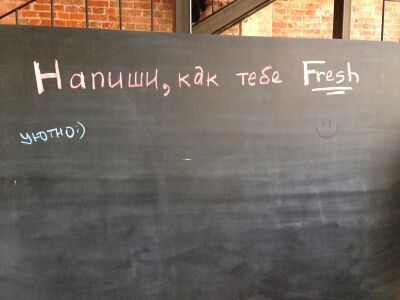 Напиши, как тебе Fresh
уютно:)